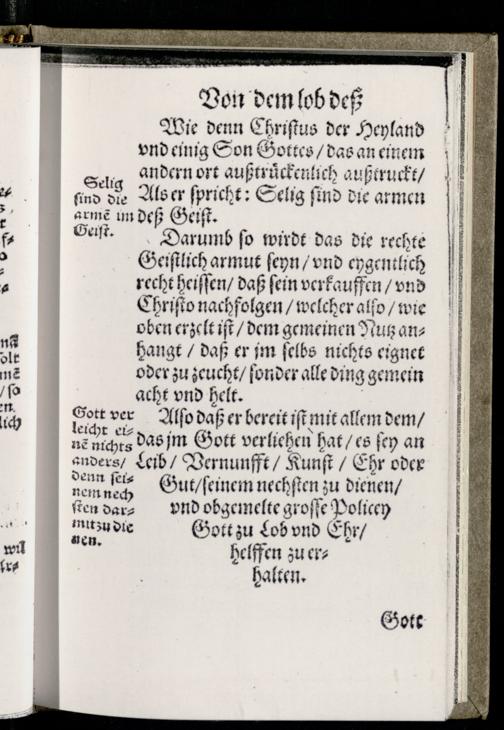 Von dem lob deß
Wie denn Christus der Heyland
vnd einig Son Gottes / das an einem
andern ort außtrückenlich außtruckt /
Als er spricht: Selig sind die armen
deß Geist.
Selig
sind die
armē im
Geist.
Darumb so wirdt das die rechte
Geistlich armut seyn / vnd eygentlich
recht heissen / daß sein verkauffen / vnd
Christo nachfolgen / welcher also / wie
oben erzelt ist / dem gemeinen Nutz an-
hangt / daß er jm selbs nichts eignet
oder zu zeucht / sonder alle ding gemein
acht vnd helt.
Also daß er bereit ist mit allem dem /
das jm Gott verliehen hat / es sey an
Leib / Vernunfft / Kunst / Ehr oder
Gut / seinem nechsten zu dienen /
vnd obgemelte grosse Policey
Gott zu Lob vnd Ehr /
helffen zu er-
halten.
Gott ver
leicht ei-
nē nichts
anders /
denn sei-
nem nech
sten dar-
mit zu die
nen.
Gott